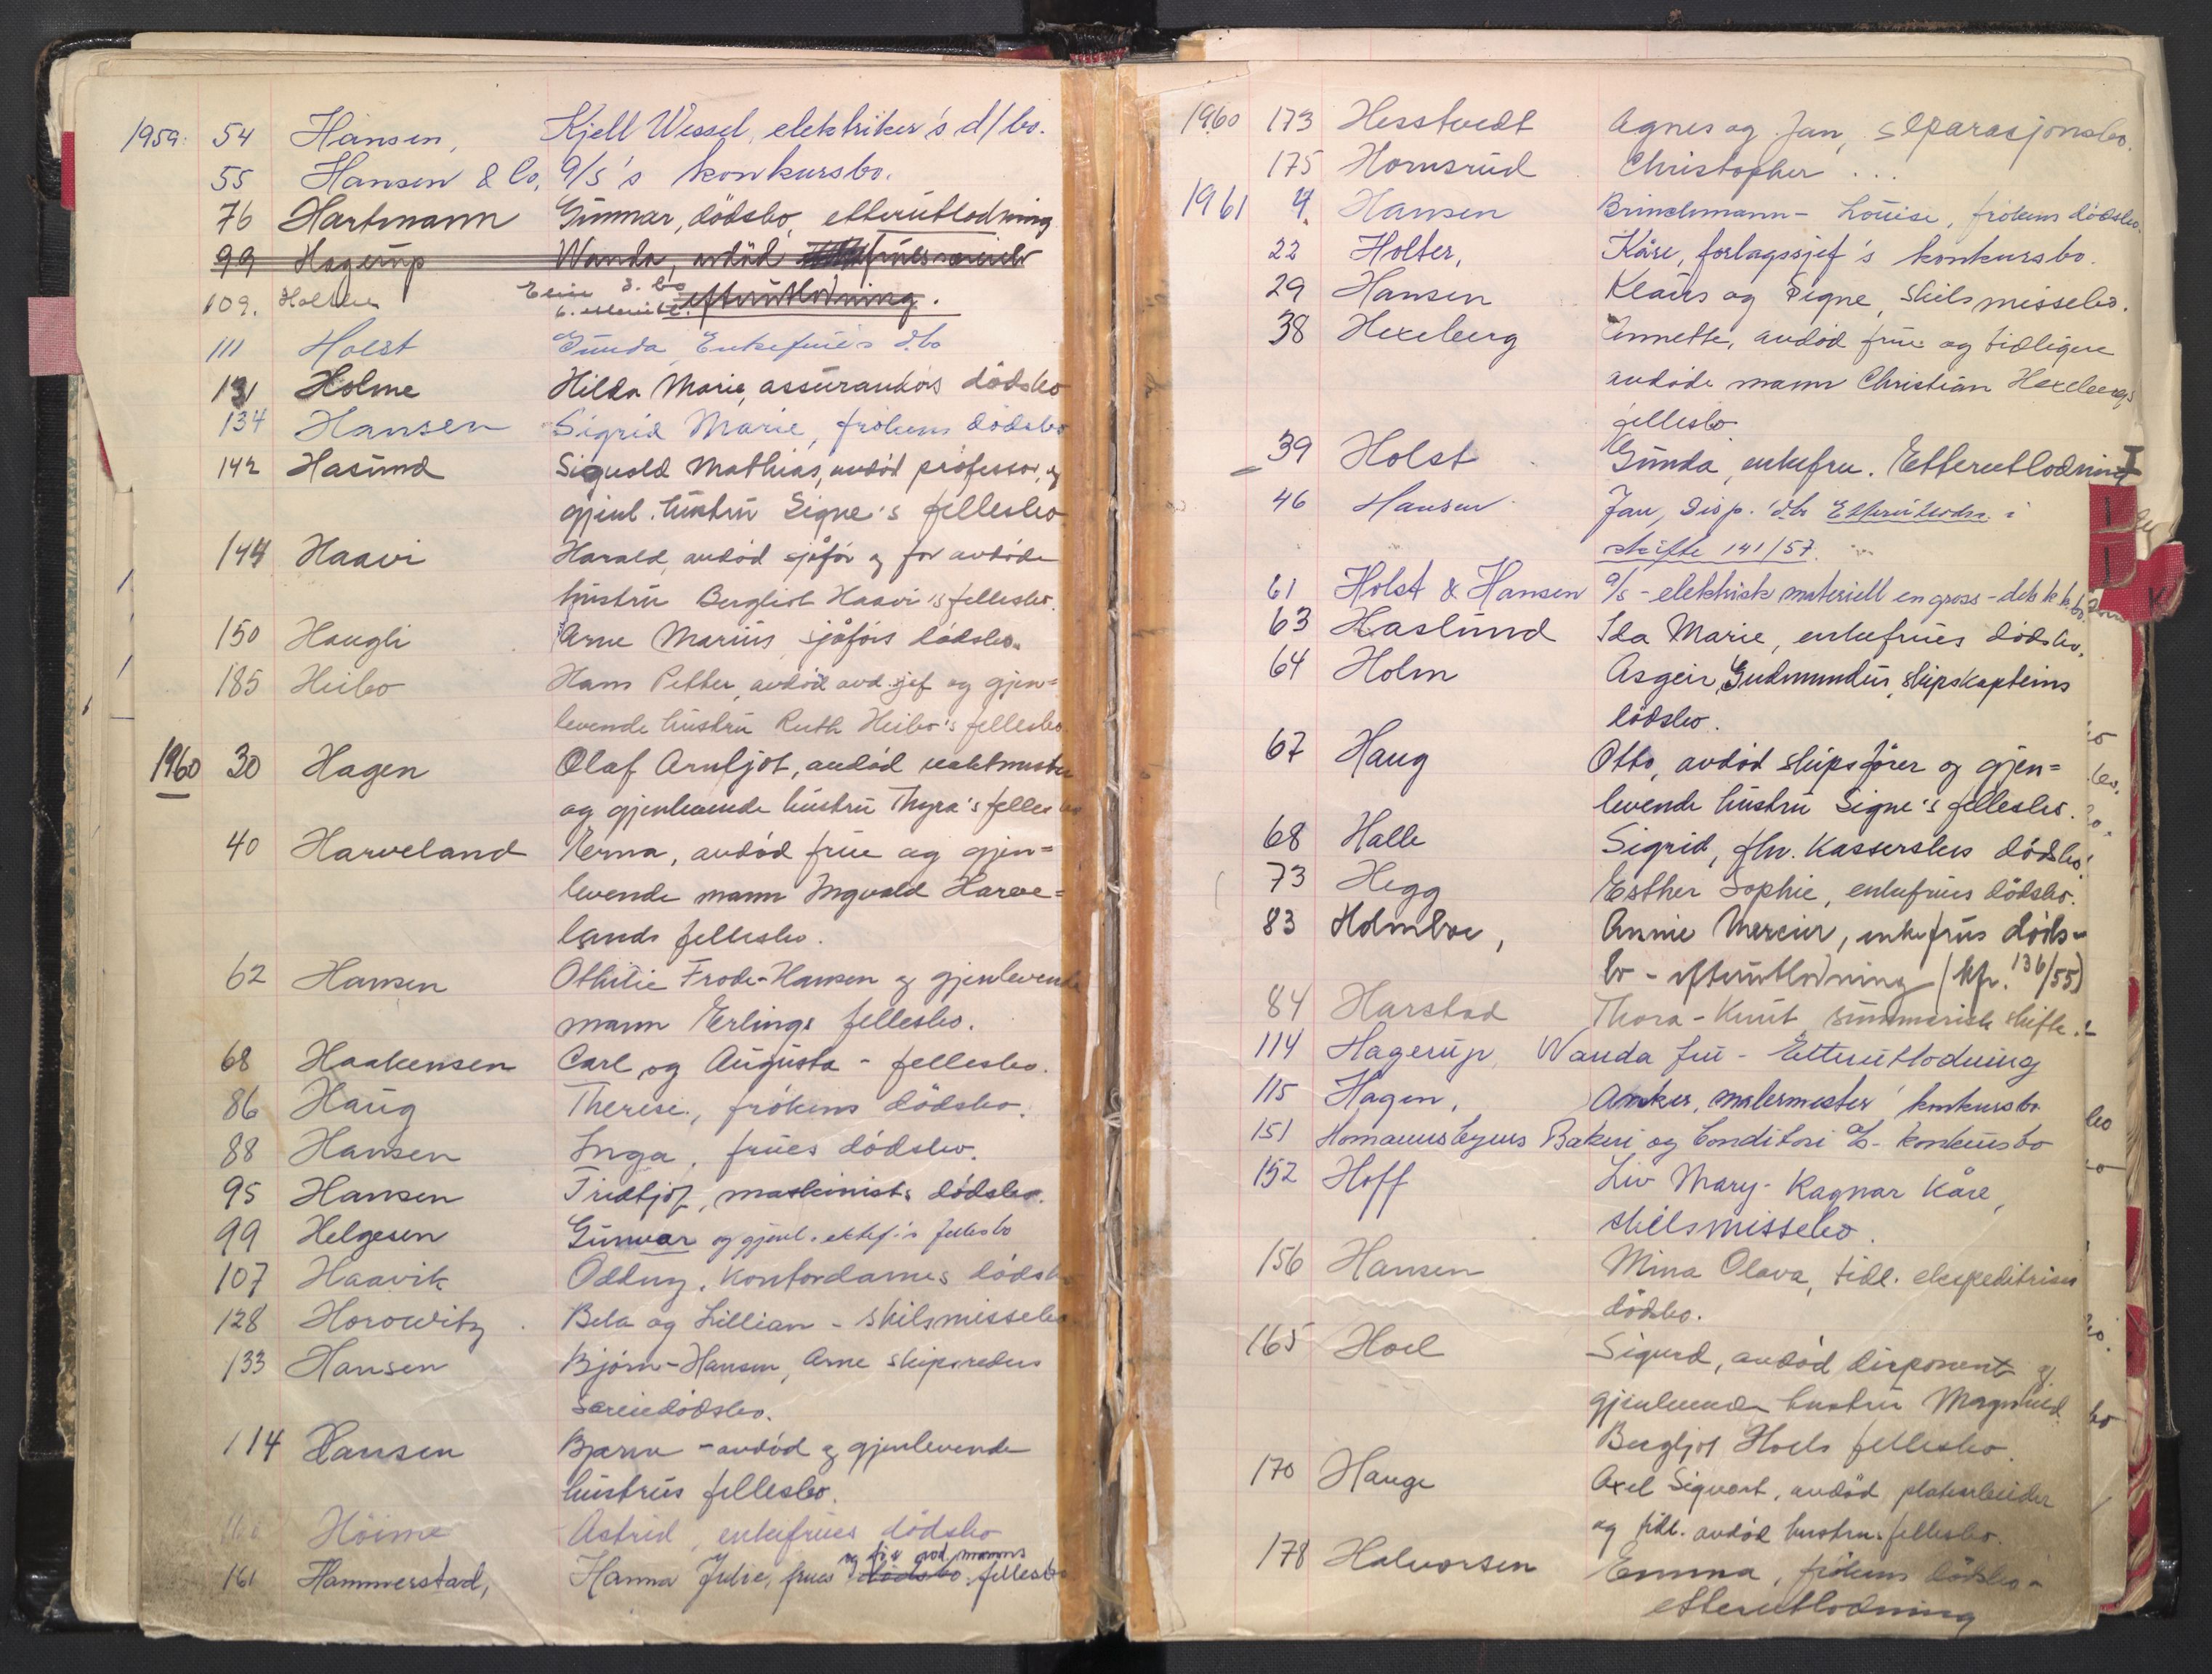 1959: 54 Hansen, Kjell Wessel, elektriker's d/bo.
55 Hansen & Co, a/s's konkursbo.
76 Hartmann Gunnar, dödsbo, etterutlodning
99 Hagerup Wanda, avdöd frues
efterutlodning.
109. Holter
111 Holst Gunda, Enkefrue's d.bo
131 Holme Hilda Marie, assurandørs dödsbo
134 Hansen Sigrid Marie, frökens dödsbo
142 Hasund Sigvald Mathias, avdöd professor, og
gjenl. hustru Signe's fellesbo
144 Haavi Harald, avdöd sjåför og før avdöde
hustru Bergliot Haavi's fellesbo.
150 Haugli Arne Marius, sjåförs dödsbo.
185 Heibo Hans Petter, avdöd avd. sjef og gjen=
levende hustru Ruth Heibo's fellesbo.
1960 30 Hagen Olaf Arnljot, avdöd vaktmester
og gjenlevende hustru Thyra's fellesbo
40 Harveland Erna, avdöd frue og gjen=
levende mann Ingvald Harve=
lands fellesbo.
62 Hansen Othilie Frode-Hansen og gjenlevende
mann Erlings fellesbo.
68 Haakensen Carl og Augusta - fellesbo.
86 Haug Therese, frökens dödsbo.
88 Hansen Inga, frues dödsbo.
95 Hansen Fridtjof, maskinists dödsbo.
99 Helgesen Gunvor og gjenl. ektef.'s fellesbo
107 Haavik Oddny, Kontordames dödsbo
128 Horowitz. Bela og Lillian - skilsmissebo
133 Hansen Bjørn-Hansen, Arne skipsreders
særeiedödsbo.
114 Hansen Bjarne - avdöd og gjenlevende
hustrus fellesbo.
160 Höime Astrid, enkefrues dödsbo
og tid. avd. manns
161 Hammerstad, Hanna Julie, frues dödsbo fellesbo
1960 173 Hesstvedt Agnes og Jan, separasjonsbo.
175 Hornsrud Christopher ...
1961 4. Hansen Brinchmann - Louise, frökens dödsbo.
22 Holter, Kåre, forlagssjef's konkursbo.
29 Hansen Klaus og Signe, skilsmissebo.
38 Hexeberg Annette, avdöd frue og tidligere
avdöde mann Christian Hexebergs
fellesbo.
39 Holst Gunda, enkefru. Etterutlodning
46 Hansen Jan, Disp. dbo Etterutlodn. i
skifte 141/57.
61 Holst & Hansen a/s - elektrisk materiell en gross - dets k.k.bo.
63 Haslund Ida Marie, enkefrues dödsbo.
64 Holm Asgeir, Gudmundur, skipskapteins
dödsbo.
67 Haug Otto, avdöd skipsfører og gjen=
levende hustru Signe's fellesbo.
68 Halle Sigrid, fhv. Kasserskes dödsbo.
73 Hegg Esther Sophie, enkefrues dödsbo.
83 Holmboe, Annie Mercier, enkefrus döds-
bo - efterutlodning (kfr. 136/55)
84 Harstad Thora - Knut, summarisk skifte.
114 Hagerup, Wanda fru - Etterutlodning
115 Hagen, Anker, malermester' konkursbo
151 Homannsbyens Bakeri og Conditori a/s - konkursbo
152 Hoff Liv Mary - Ragnar Kåre,
skilsmissebo.
156 Hansen Mina Olava, tidl. ekspeditrises
dödsbo.
165 Hoel Sigurd, avdöd disponent og
gjenlevende hustru Magnhild
Bergljot Hoels fellesbo
170 Hauge Axel Sigvart, avdöd platearbeider
og tidl. avdöd hustrus fellesbo.
178 Halvorsen Emma, frökens dödsbo -
etterutlodning